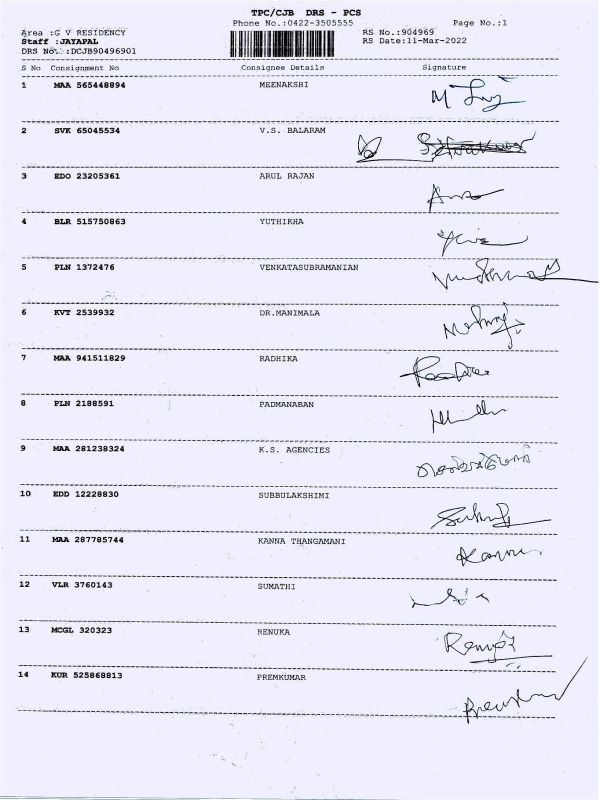 TPC/CJB DRS - PCS
Phone No.:0422-3505555 Page No.:1
Area :G V RESIDENCY RS No.:904969
Staff :JAYAPAL RS Date:11-Mar-2022
DRS No.:DCJB90496901
S No Consignment No Consignee Details Signature
1 MAA 565448894 MEENAKSHI
2 SVK 65045534 V.S. BALARAM
3 EDO 23205361 ARUL RAJAN
4 BLR 515750863 YUTHIKHA
5 PLN 1372476 VENKATASUBRAMANIAN
6 KVT 2539932 DR.MANIMALA
7 MAA 941511829 RADHIKA
8 PLN 2188591 PADMANABAN
9 MAA 281238324 K.S. AGENCIES
10 EDD 12228830 SUBBULAKSHIMI
11 MAA 287785744 KANNA THANGAMANI
12 VLR 3760143 SUMATHI
13 MCGL 320323 RENUKA
14 KUR 525868813 PREMKUMAR